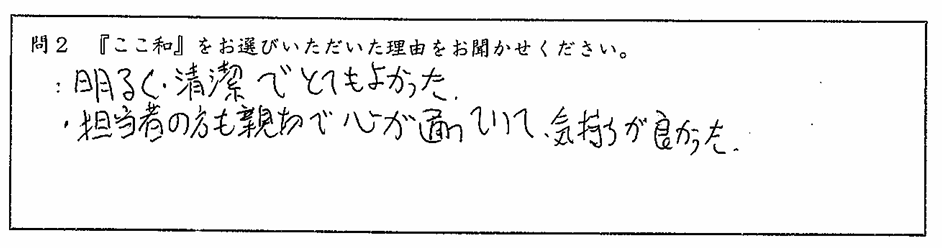 問2 『ここ和』をお選びいただいた理由をお聞かせください。
:明るく・清潔でとてもよかった.
・担当者の方も親切で心が通っていて、気持ちが良かった.